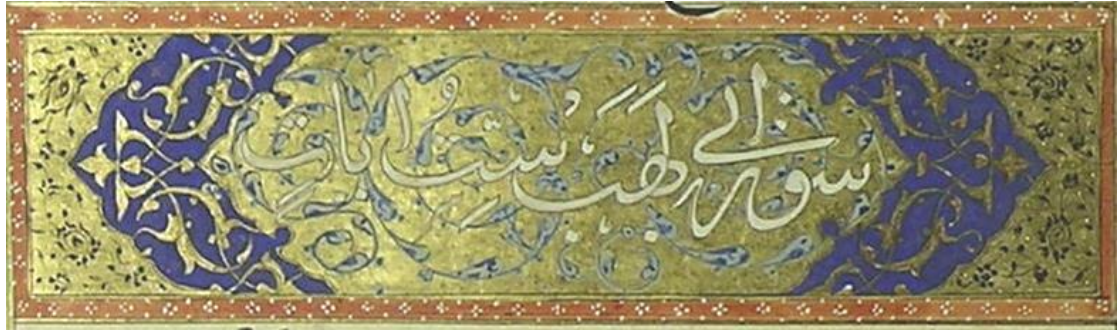 سورة ابي لهب ست ايات